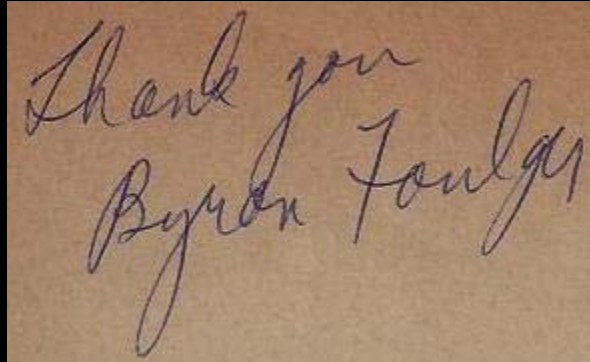 Thank you
Byron Foulger